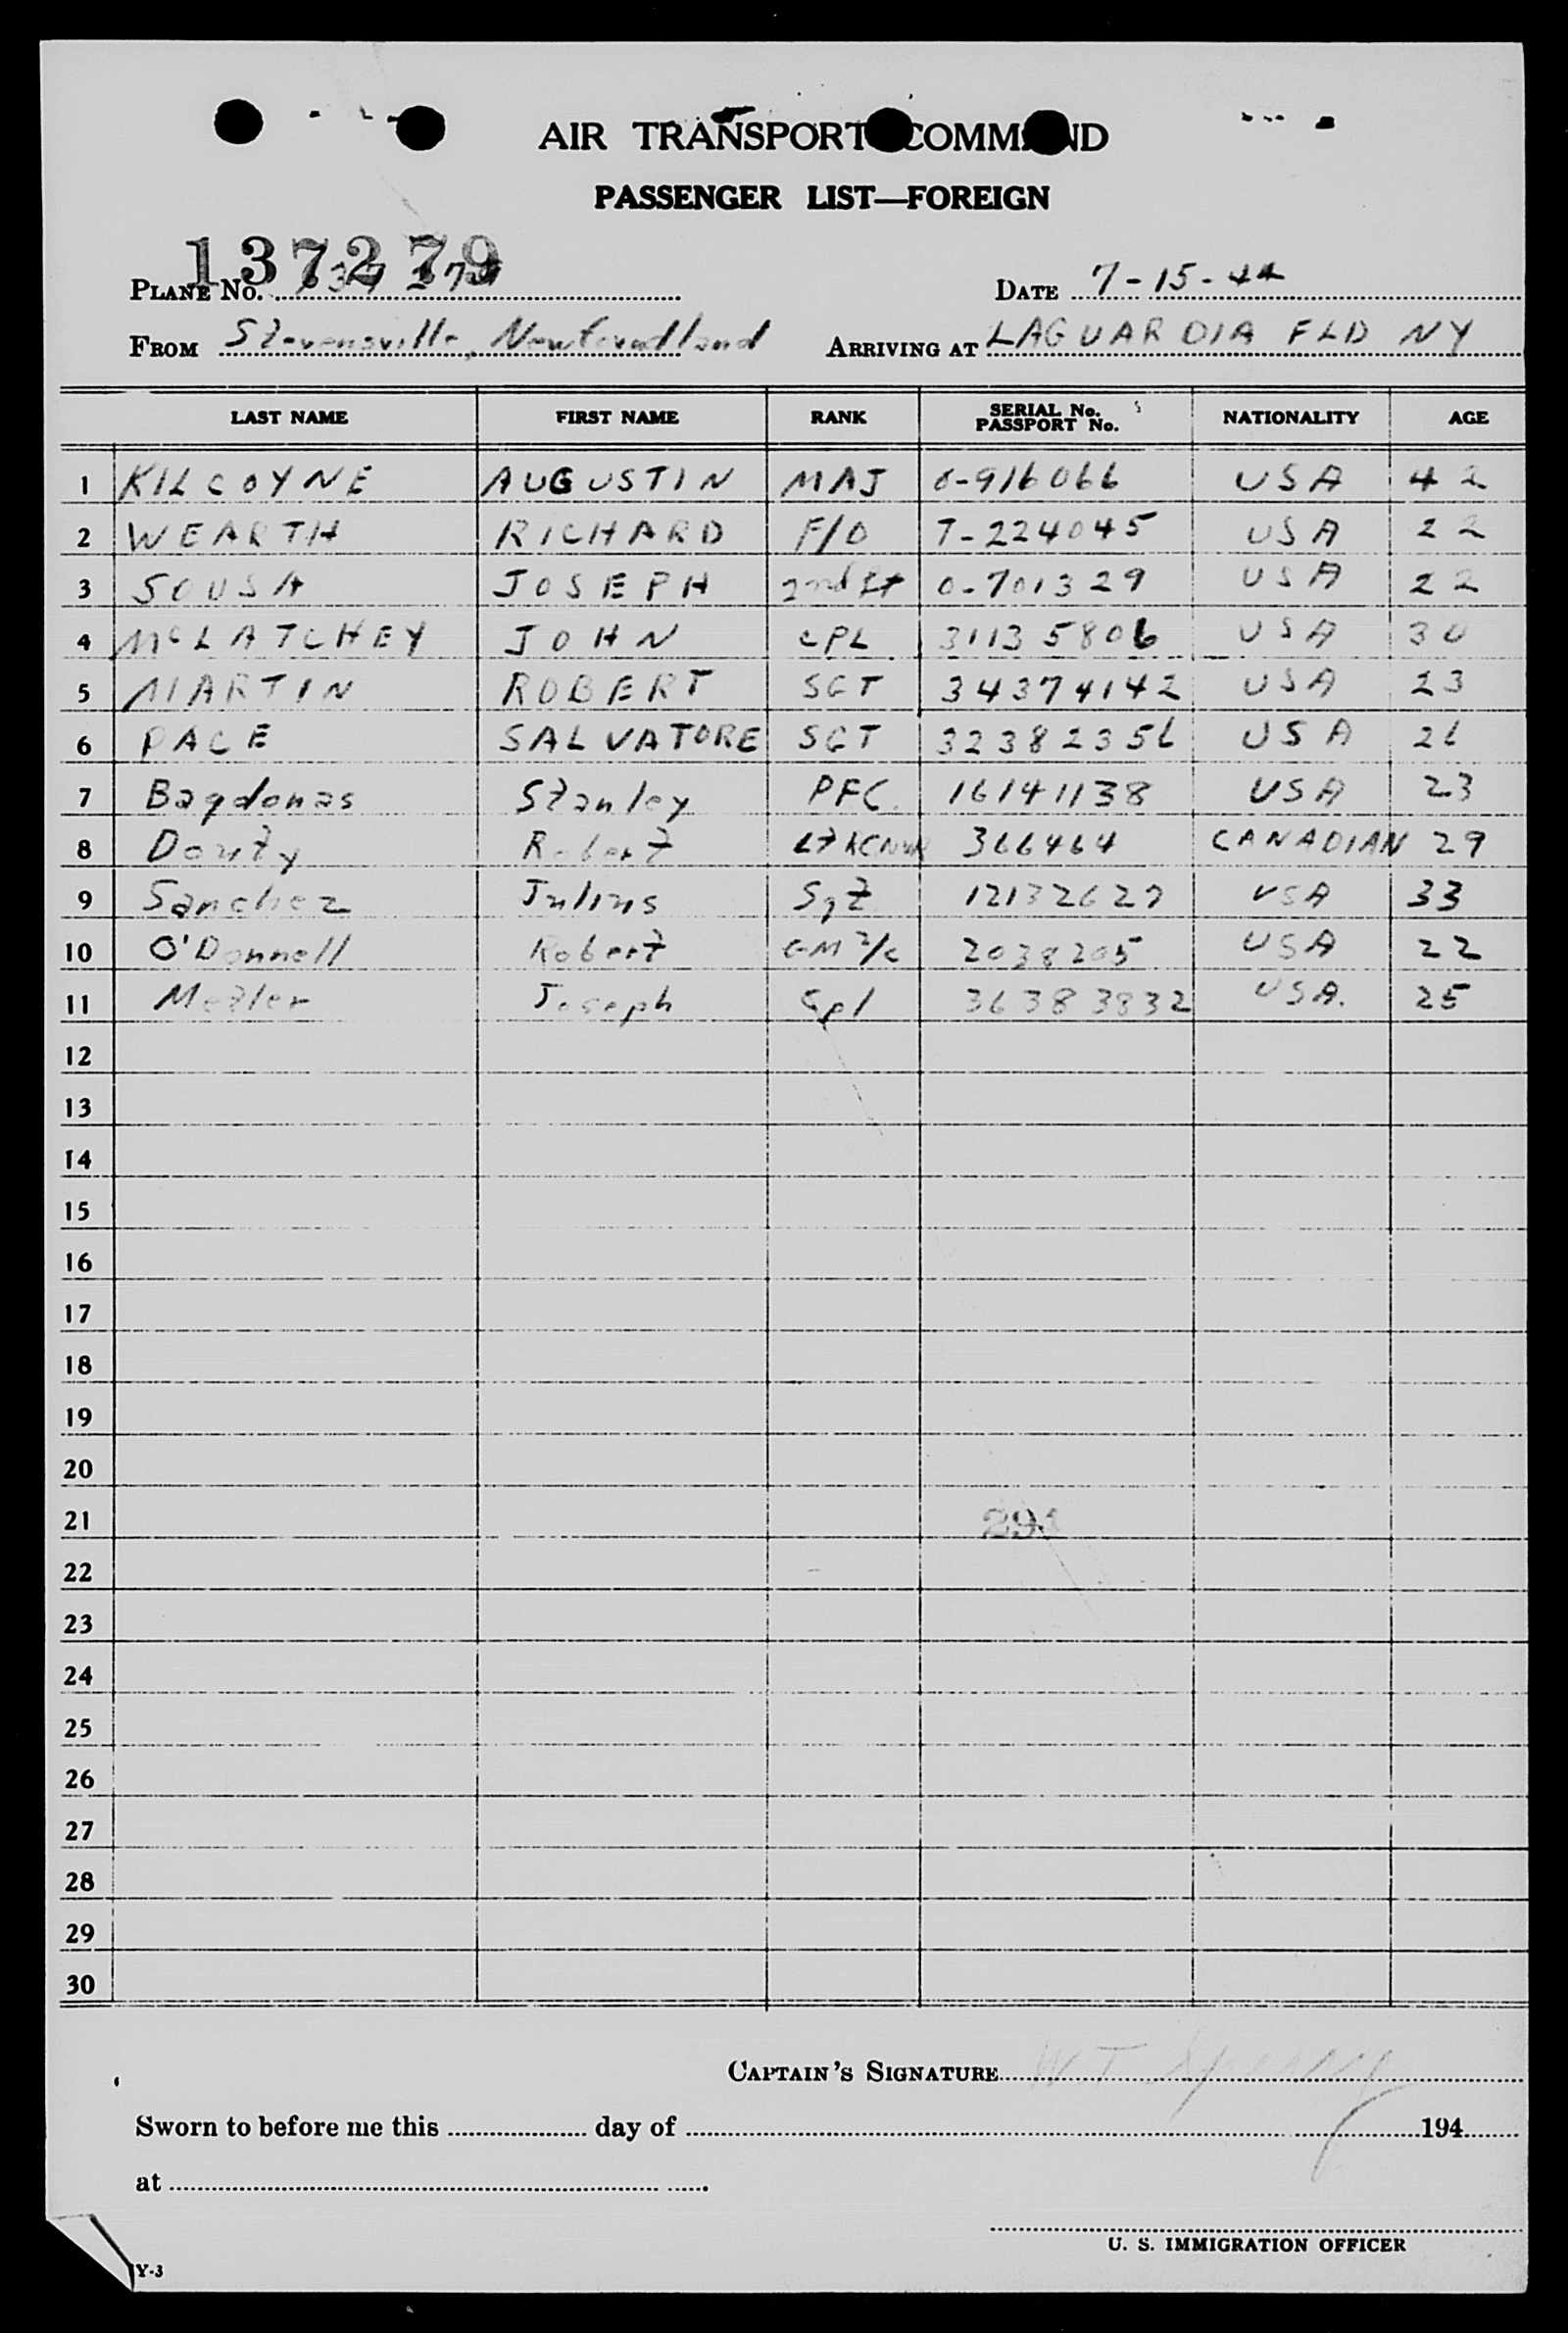 AIR TRANSPORT COMMAND
PASSENGER LIST—FOREIGN
137279
PLANE No.
DATE 7-15-44
FROM Stevensville, Newfoundland ARRIVING AT LAGUARDIA FLD NY
LAST NAME FIRST NAME RANK SERIAL No. PASSPORT No. NATIONALITY AGE
1 KILCOYNE AUGUSTIN MAJ O-916066 USA 42
2 WEARTH RICHARD F/O T-224045 USA 22
3 SOUSA JOSEPH 2nd Lt O-701329 USA 22
4 McLATCHEY JOHN CPL 31135806 USA 30
5 MARTIN ROBERT SGT 34374142 USA 23
6 PACE SALVATORE SGT 32382356 USA 26
7 Bagdonas Stanley PFC 16141138 USA 23
8 Douty Robert 366464 CANADIAN 29
9 Sanchez Julius Sgt 12132627 USA 33
10 O'Donnell Robert GM 2/c 2038205 USA 22
11 Metler Joseph Cpl 36383832 USA. 25
12
13
14
15
16
17
18
19
20
21
22
23
24
25
26
27
28
29
30
CAPTAIN'S SIGNATURE W T
Sworn to before me this day of 194
at
U. S. IMMIGRATION OFFICER
Y-3